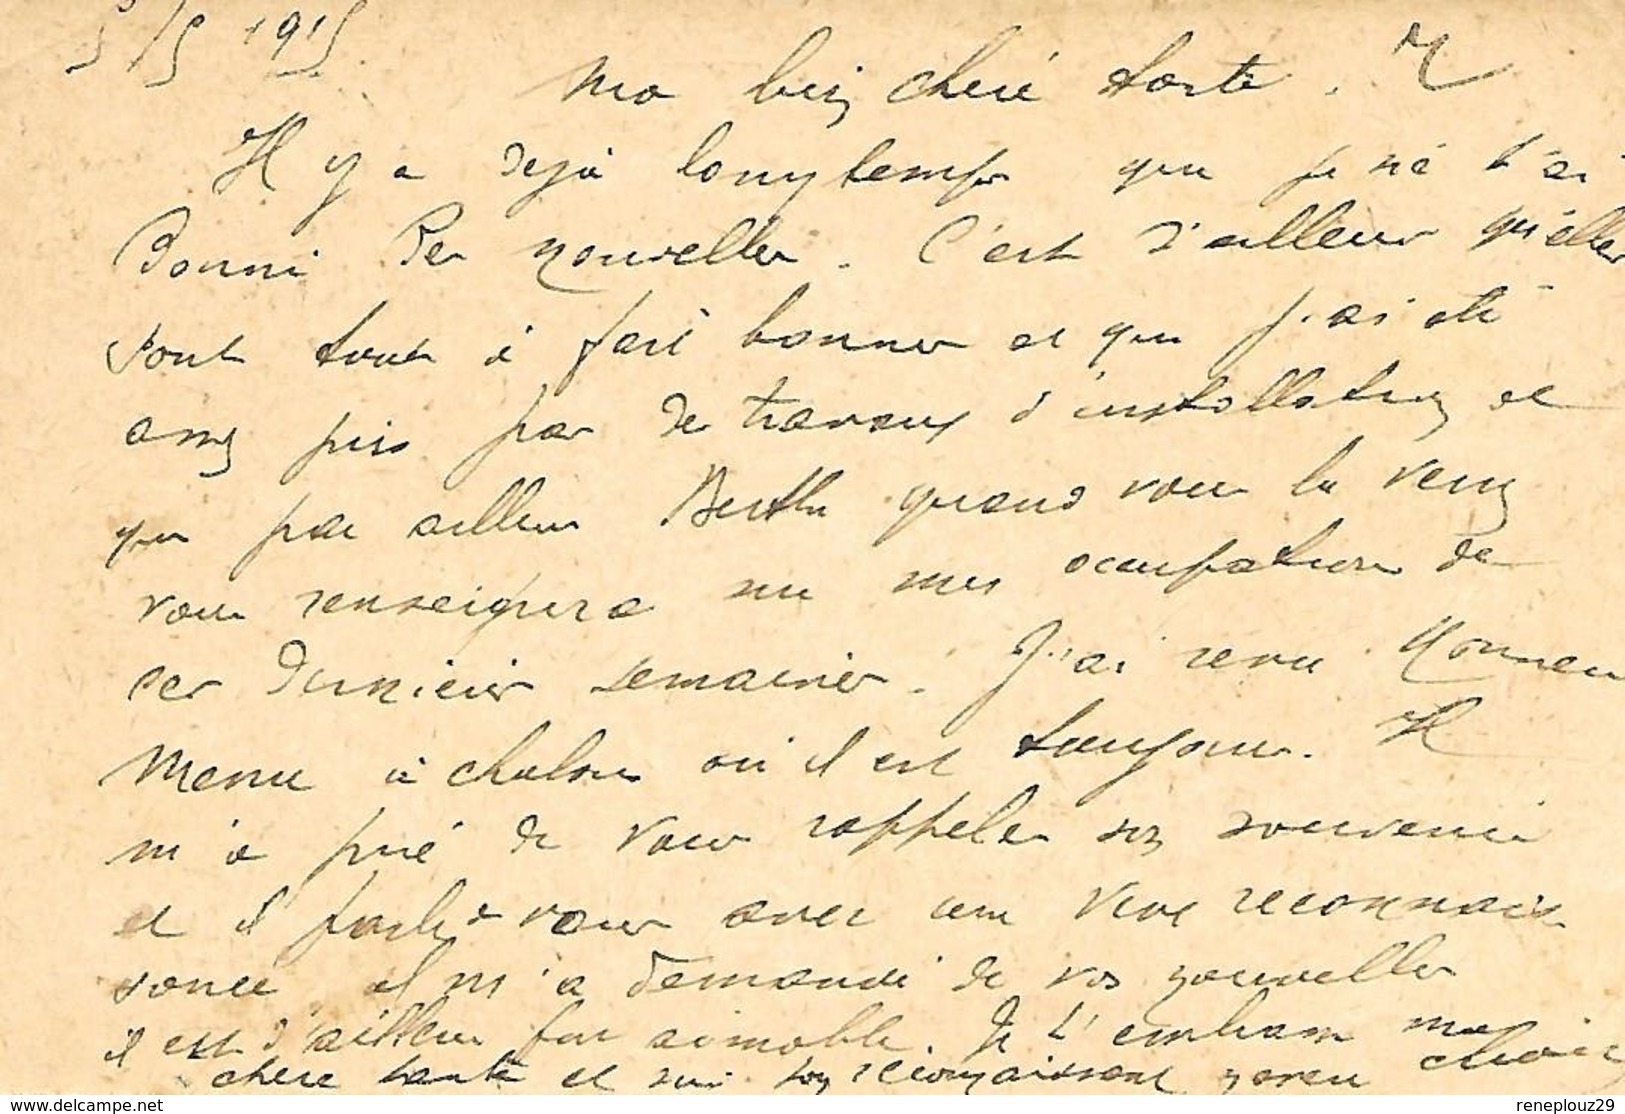 5/5 1915
Ma bien chère tante.
Il y a dejà longtemps que je ne t'ai
donné des nouvelles. C'est d'ailleurs qu'elles
sont tout à fait bonnes et que j'ai été
assez pris par des travaux d'installation et
que par ailleurs Berthe quand vous la verrez
vous renseignera sur mes occupations de
ces dernières semaines. J'ai revu Monsieur
Menu à Chalons où il est toujours. Il
m'a prié de vous rappeler son souvenir
et il parle de vous avec une vive reconnais
sance il m'a demandé de vos nouvelles
il est d'ailleurs fort aimable. Je t'embrasse ma
chère tante et suis ton reconnaissant neveu
www.delcampe.net
reneplouz29